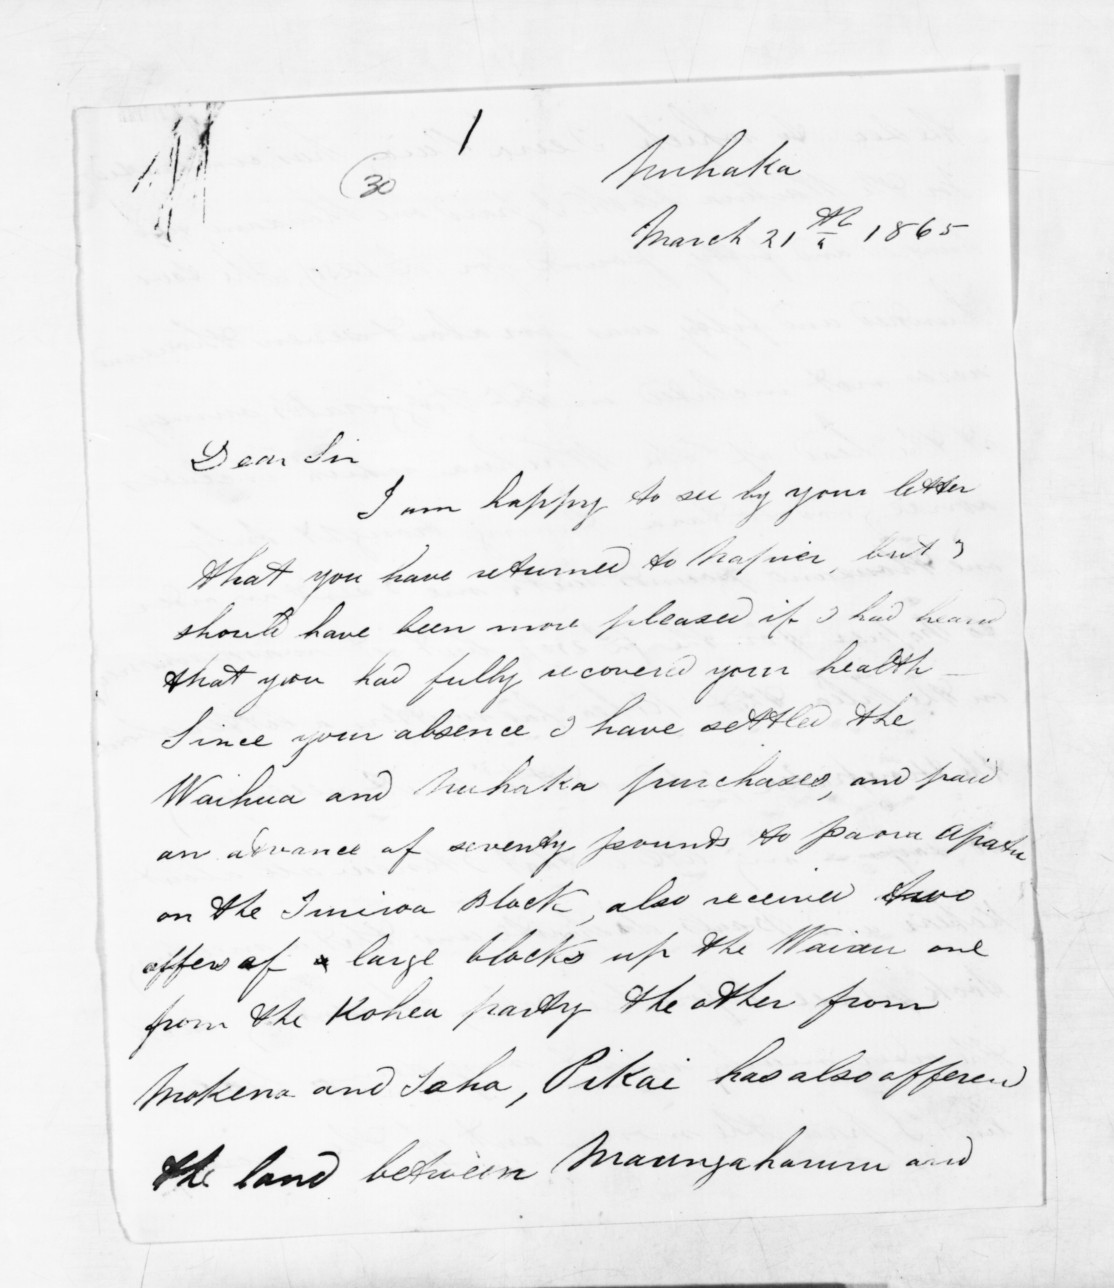 1
30
Nuhaka
March 21st 1865
Dear Sir
I am happy to see by your letter
that you have returned to Napier, but I
should have been more pleased if I had heard
that you had fully recovered your health —
Since your absence I have settled the
Waihua and Nuhaka purchases, and paid
an advance of seventy pounds to Paora Apatu
on the Block, also received two
offers of large blocks up the Waiau one
from the Kohea party the other from
Mokena and Toha, Pikai has also offered
the land between Maungaharuru and